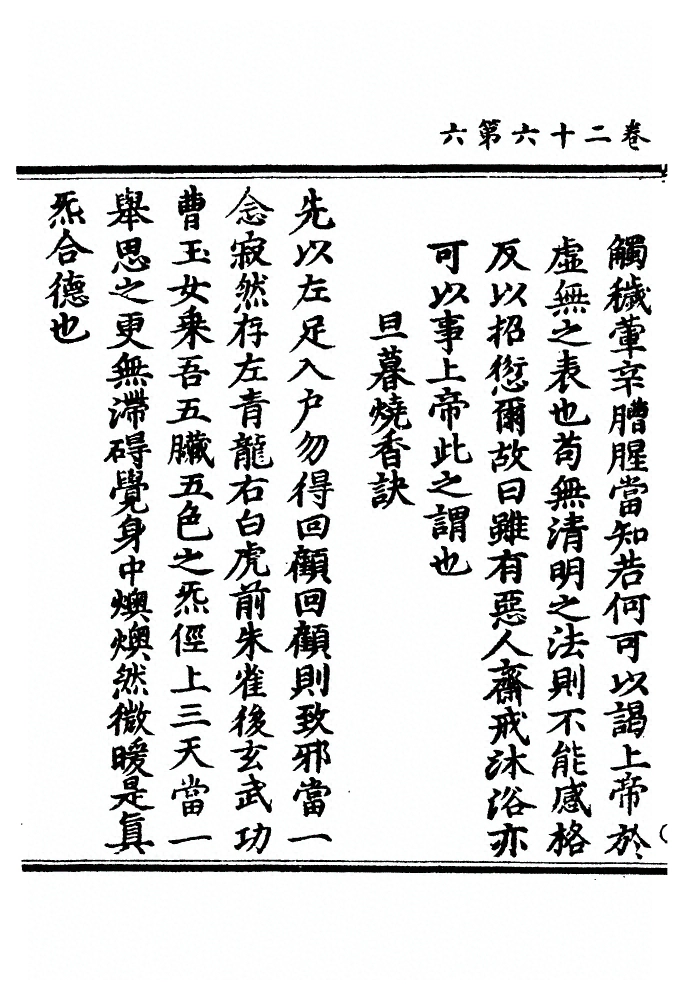 卷二十六第六
觸穢葷辛膻腥當知若何可以謁上帝於
虛無之表也苟無清明之法則不能感格
反以招愆爾故曰雖有惡人齋戒沐浴亦
可以事上帝此之謂也
旦暮燒香訣
先以左足入戶勿得回顧回顧則致邪當一
念寂然存左青龍右白虎前朱雀後玄武功
曹玉女乘吾五臟五色之炁徑上三天當一
舉思之更無滯碍覺身中燠燠然微暖是眞
炁合德也